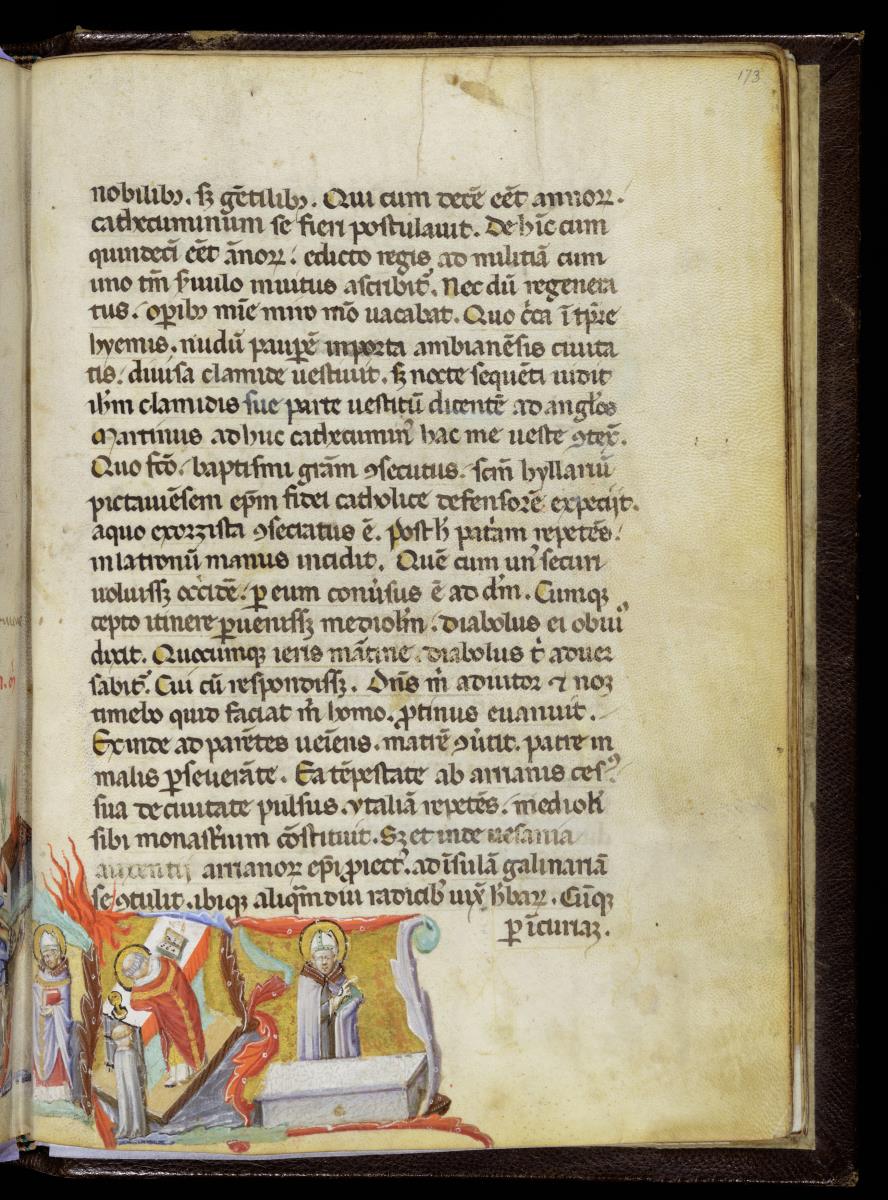 173
nobilibꝰ. sꝫ gētilibꝰ. Qui cum decē eēt annoꝝ.
cathecuminum se fieri postulauit. De hīc cum
quindecī eēt ānoꝝ. edicto regis ad militiā cum
uno tm̄ s̓uulo inuitus ascribit᷑. Nec dū regenera
tus. oꝑibꝰ mīe miro mō uacabat. Quo
hyemis. nudū pauꝑē inporta ambianēsis ciuita
tis. diuisa clamide uestiuit. sꝫ nocte sequēti uidit
ih̄m clamidis sue parte uestitū dicentē ad angl̓os
Martinus adhuc cathecuminꝰ hac me ueste ꝯtex̄.
Quo fc̄o. baptismi grām ꝯsecutus. scm̄ hyllariū
pictauēsem ep̄m fidei catholice defensorē expeciit.
aquo exorzista ꝯsecratus ē. Post h̄ patriam repetēs.
inlatronū manus incidit. Quē cum unꝰ securi
uoluissꝫ occidē. ꝑ eum conu̓sus ē ad dm̄. Cumqꝫ
cepto itinere ꝑuenissꝫ mediol̄m. diabolus ei obuiꝰ
dixit. Quocumqꝫ ieris mātine. diabolus t̓ aduer
sabit᷑. Cui cū respondissꝫ. Dn̄s m̓ adiutor ⁊ non
timebo quid faciat m̓ homo. ꝓtinus euanuit.
Exinde ad parētes ueiens. matrē ꝯu̓tit. patre in
malis ꝑseuerāte. Ea tēpestate ab arrianis cesꝰ.
sua de ciuitate pulsus. ytaliā repetēs. mediol̄i
sibi monasterium cōstituit. Sꝫ et inde uesania
auxentij arrianoꝝ ep̄i ꝓiectꝰ. ad īsulā galinariā
se ꝯtulit. ibiqꝫ aliqm̄diu radicibꝰ uix̄ h̓baꝝ. Cūqꝫ
ꝑ īcuriaꝫ.